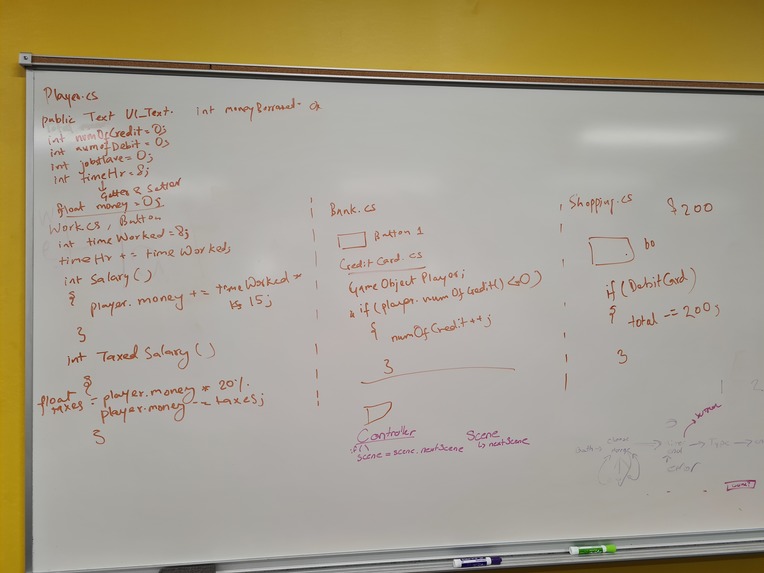 Player.cs
public Text UI_Text. int moneyBorrowed =
int numOfCredit = 0;
int numofDebit = 0;
int jobsHave = 0;
int timeHr = 8;
↓
Getter & Setter
float money = 0;
Work.cs, Button
int time Worked = 8;
timeHr += time Worked;
int Salary ( )
{
player. money += timeWorked *
15;
}
int Taxed Salary ( )
{
float taxes = player.money * 20%.
player.money -= taxes;
}
Bank.cs
Button 1
Credit Card. cs
Game Object Player;
if (player. num Of Credit() <= 0)
{
numOfCredit ++;
}
Controller
if ( )
Scene = scene. nextScene
Scene
↳ nextScene
Shopping.cs
$200
bo
if (DebitCard)
{
total -= 200;
}
1 2
error